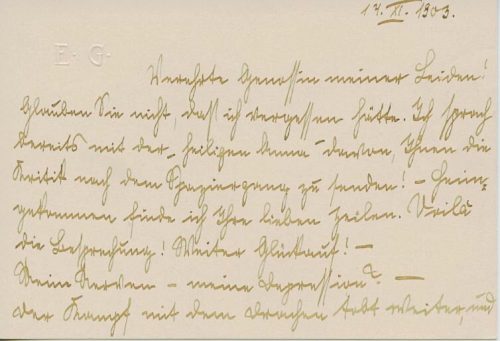 17. XI. 1903.
E. G.
Verehrte Genossin meiner Leiden!
Glauben Sie nicht, daß ich vergessen hätte. Ich sprach
bereits mit der „heiligen Anna“ davon, Ihnen die
Kritik nach dem Spaziergang zu senden! – Heim-
gekommen finde ich Ihre lieben Zeilen.
die Besprechung! Weiter Glückauf! –
Meine Nerven – meine Depression? –
der Kampf mit dem Drachen tobt weiter, und